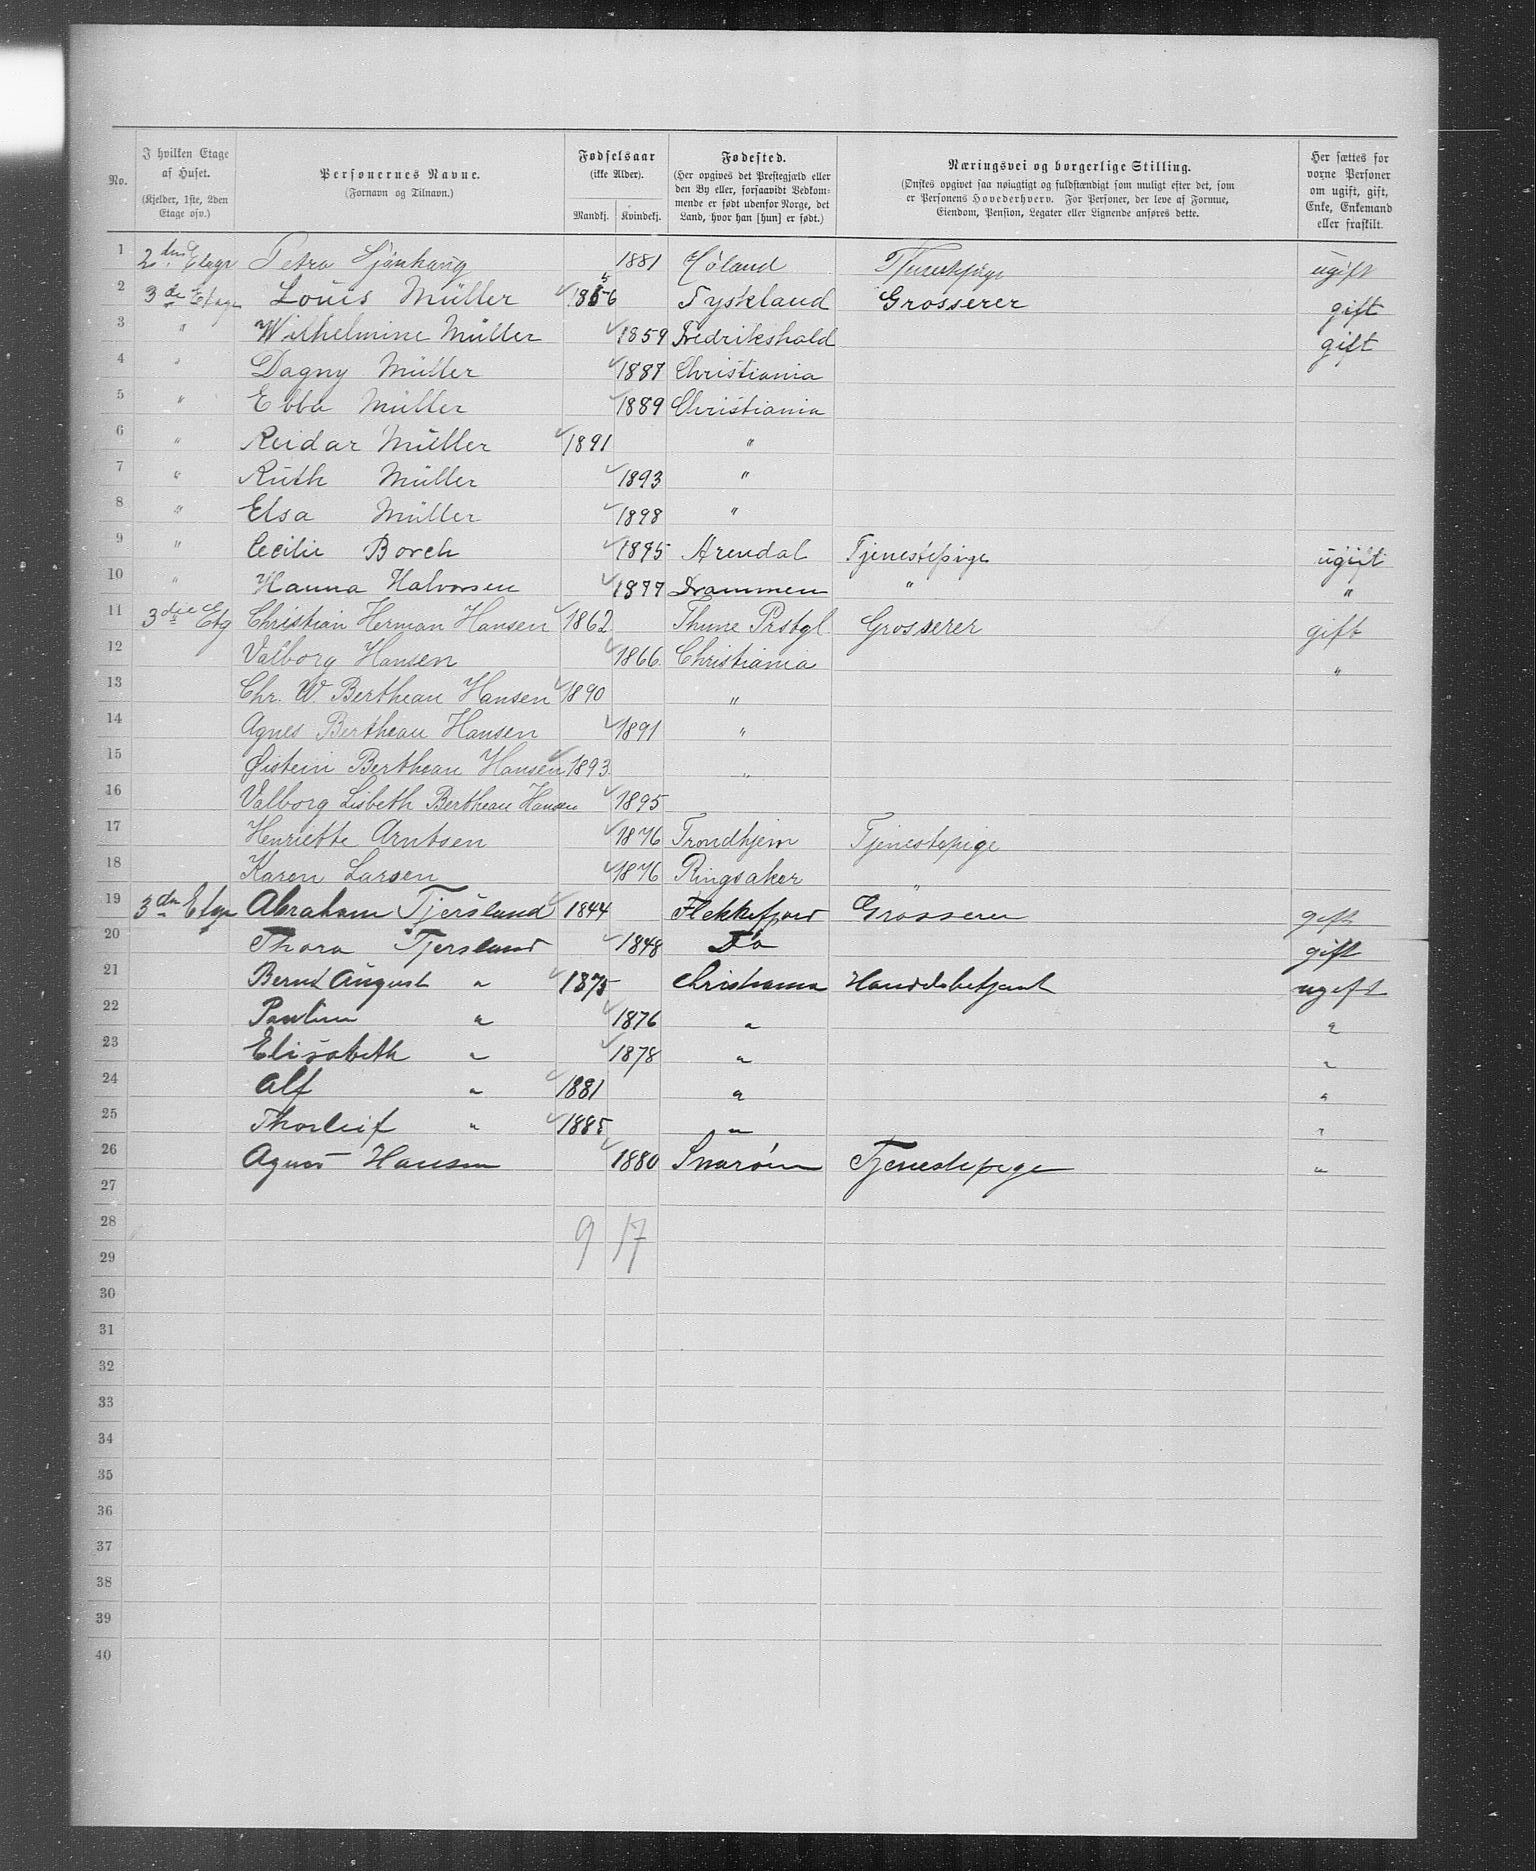 No. I hvilken Etage af Huset. (Kjelder, 1ste, 2den Etage osv.) Personernes Navne. (Fornavn og Tilnavn.) Fødselsaar (ikke Alder). Mandkj. Kvindekj. Fødested. (Her opgives det Prestegjæld eller den By eller, forsaavidt Vedkommende er født udenfor Norge, det Land, hvor han [hun] er født.) Næringsvei og borgerlige Stilling. (Ønskes opgivet saa nøiagtigt og fuldstændigt som muligt efter det, som er Personens Hovederhverv. For Personer, der leve af Formue, Eiendom, Pension, Legater eller Lignende anføres dette. Her sættes for vorne Personer om ugift, gift, Enke, Enkemand eller fraskilt.
1 2den Etage Petra 1881 Høland Tjenestepige ugift
2 3de Etage Louis Müller 1856 Tyskland Grosserer gift
3 " Wilhelmine Müller 1859 Fredrikshald gift
4 " Dagny Müller 1887 Christiania
5 " Ebba Müller 1889 Christiania
6 " Reidar Müller 1891 "
7 " Ruth Müller 1893 "
8 " Elsa Müller 1898 "
9 " Cecilie Borch 1875 Arendal Tjenestepige ugift
10 " Hanna Halvorsen 1877 Drammen " "
11 3die Etg Christian Herman Hansen 1862 Thune Prstgl. Grosserer gift
12 Valborg Hansen 1866 Christiania "
13 Chr. W. Bertheau Hansen 1890 "
14 Agnes Bertheau Hansen 1891 "
15 Øistein Bertheau Hansen 1893 "
16 Valborg Lisbeth Bertheau Hansen 1895
17 Henriette Arntsen 1876 Trondhjem Tjenestepige
18 Karen Larsen 1876 Ringsaker "
19 3die Etge Abraham Tjersland 1844 Flekkefjord Grosserer gift
20 Thora Tjersland 1848 Do gift
21 Bernt August " 1875 Christiania Handelsbetjent ugift
22 Pauline " 1876 " "
23 Elisabeth " 1878 " "
24 Alf " 1881 " "
25 Thorleif " 1885 " "
26 Agnes Hansen 1880 Snarøen Tjenestepige "
27
28 9 17
29
30
31
32
33
34
35
36
37
38
39
40